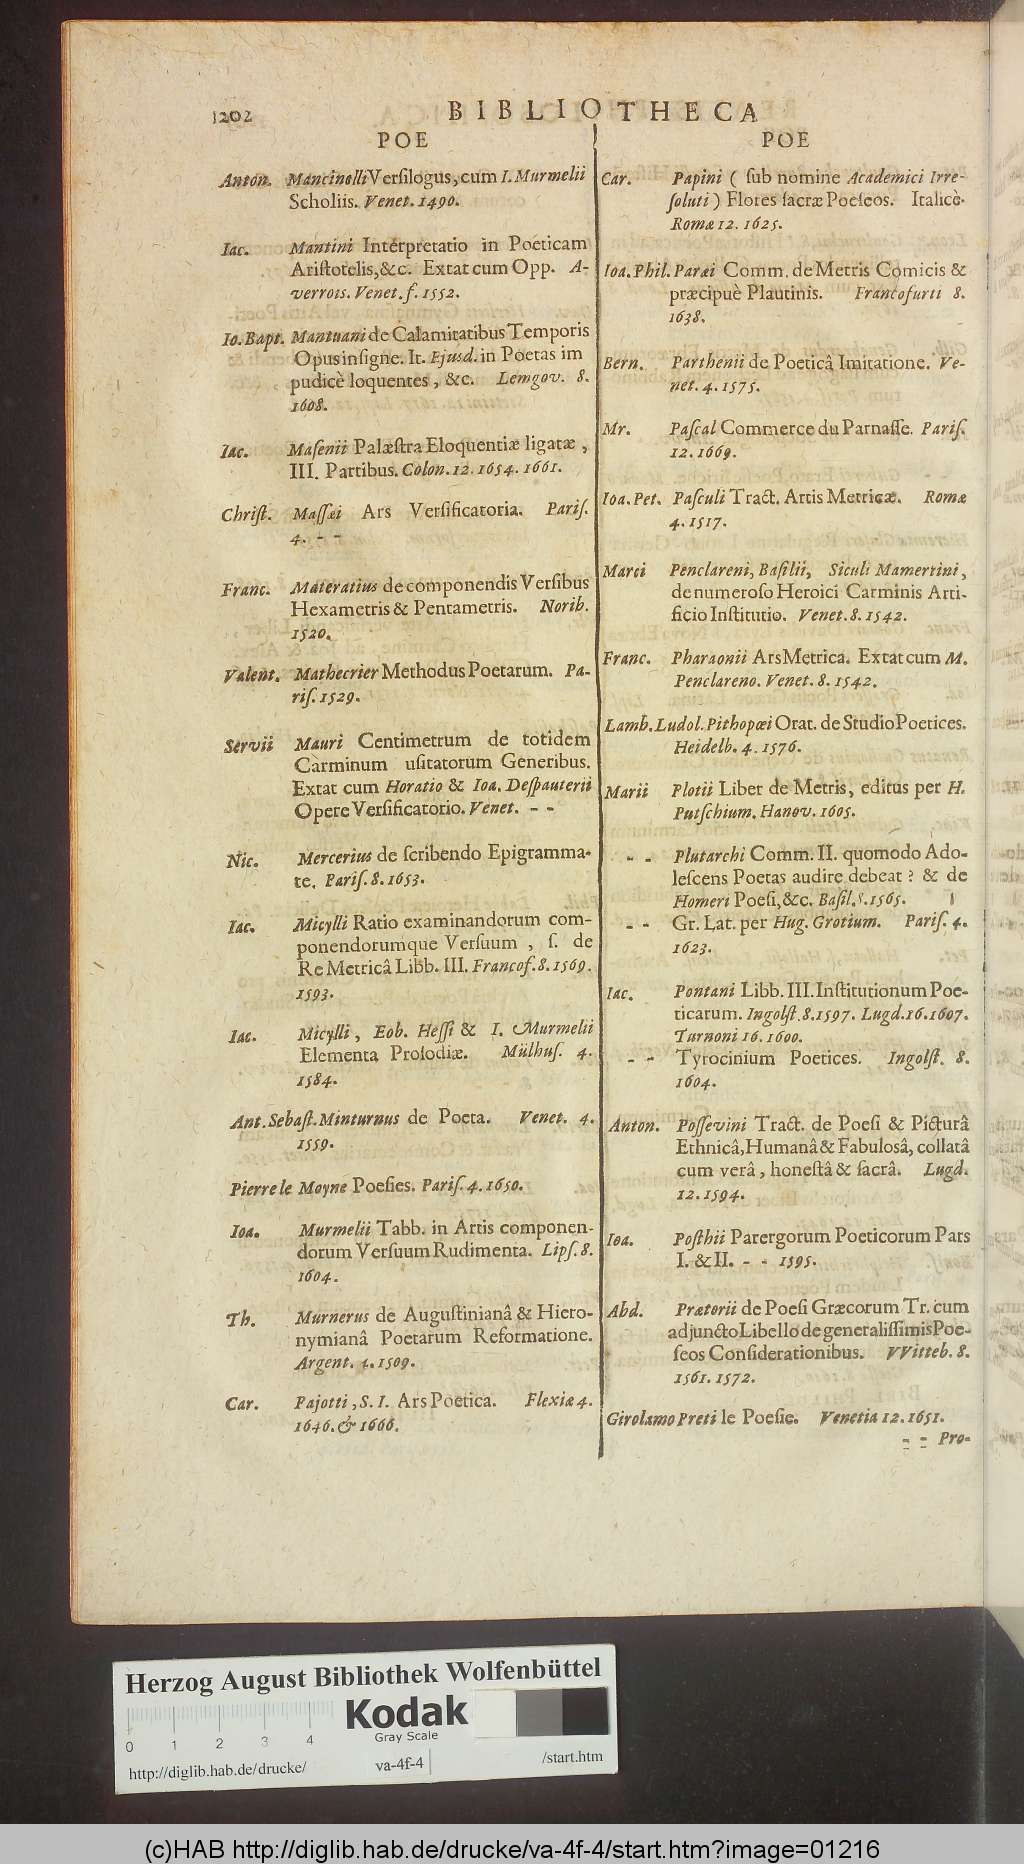 1202
BIBLIOTHECA
POE
Anton. Mancinelli Versilogus, cum I. Murmelii
Scholiis. Venet. 1490.
Iac. Mantini Interpretatio in Poeticam
Aristotelis, &c. Extat cum Opp. A-
verrois. Venet. f. 1552.
Io. Bapt. Mantuani de Calamitatibus Temporis
Opus insigne. It. Ejusd. in Poetas im
pudicè loquentes, &c. Lemgov. 8.
1608.
Iac. Masenii Palæstra Eloquentiæ ligatæ,
III. Partibus. Colon. 12. 1654. 1661.
Christ. Massæi Ars Versificatoria. Paris.
4. - -
Franc. Materatius de componendis Versibus
Hexametris & Pentametris. Norib.
1520.
Valent. Mathecrier Methodus Poetarum. Pa-
ris. 1529.
Servii Mauri Centimetrum de totidem
Carminum usitatorum Generibus.
Extat cum Horatio & Ioa. Despauterii
Opere Versificatorio. Venet. - -
Nic. Mercerius de scribendo Epigramma-
te. Paris. 8. 1653.
Iac. Micylli Ratio examinandorum com-
ponendorumque Versuum, s. de
Re Metricâ Libb. III. Francof. 8. 1569.
1593.
Iac. Micylli, Eob. Hessi & I. Murmelii
Elementa Prosodiæ. Mülhus. 4.
1584.
Ant. Sebast. Minturnus de Poeta. Venet. 4.
1559.
Pierre le Moyne Poesies. Paris. 4. 1650.
Ioa. Murmelii Tabb. in Artis componen-
dorum Versuum Rudimenta. Lips. 8.
1604.
Th. Murnerus de Augustinianâ & Hiero-
nymianâ Poetarum Reformatione.
Argent. 4. 1509.
Car. Pajotti, S. I. Ars Poetica. Flexiæ 4.
1646. & 1666.
POE
Car. Papini ( sub nomine Academici Irre-
soluti ) Flores sacræ Poeseos. Italicè.
Romæ 12. 1625.
Ioa. Phil. Paræi Comm. de Metris Comicis &
præcipuè Plautinis. Francofurti 8.
1638.
Bern. Parthenii de Poeticâ Imitatione. Ve-
net. 4. 1575.
Mr. Pascal Commerce du Parnasse. Paris.
12. 1669.
Ioa. Pet. Pasculi Tract. Artis Metricæ. Romæ
4. 1517.
Marci Penclareni, Basilii, Siculi Mamertini,
de numeroso Heroici Carminis Arti-
ficio Institutio. Venet. 8. 1542.
Franc. Pharaonii Ars Metrica. Extat cum M.
Penclareno. Venet. 8. 1542.
Lamb. Ludol. Pithopœi Orat. de Studio Poetices.
Heidelb. 4. 1576.
Marii Plotii Liber de Metris, editus per H.
Putschium. Hanov. 1605.
- - Plutarchi Comm. II. quomodo Ado-
lescens Poetas audire debeat? & de
Homeri Poesi, &c. Basil. 8. 1565.
- - Gr. Lat. per Hug. Grotium. Paris. 4.
1623.
Iac. Pontani Libb. III. Institutionum Poe-
ticarum. Ingolst. 8. 1597. Lugd. 16. 1607.
Turnoni 16. 1600.
- - Tyrocinium Poetices. Ingolst. 8.
1604.
Anton. Possevini Tract. de Poesi & Picturâ
Ethnicâ, Humanâ & Fabulosâ, collatâ
cum verâ, honestâ & sacrâ. Lugd.
12. 1594.
Ioa. Posthii Parergorum Poeticorum Pars
I. & II. - - 1595.
Abd. Prætorii de Poesi Græcorum Tr. cum
adjuncto Libello de generalissimis Poe-
seos Considerationibus. VVitteb. 8.
1561. 1572.
Girolamo Preti le Poesie. Venetia 12. 1651.
- - Pro-
Herzog August Bibliothek Wolfenbüttel
Kodak
Gray Scale
0 1 2 3 4
http://diglib.hab.de/drucke/ va-4f-4 /start.htm
(c)HAB http://diglib.hab.de/drucke/va-4f-4/start.htm?image=01216